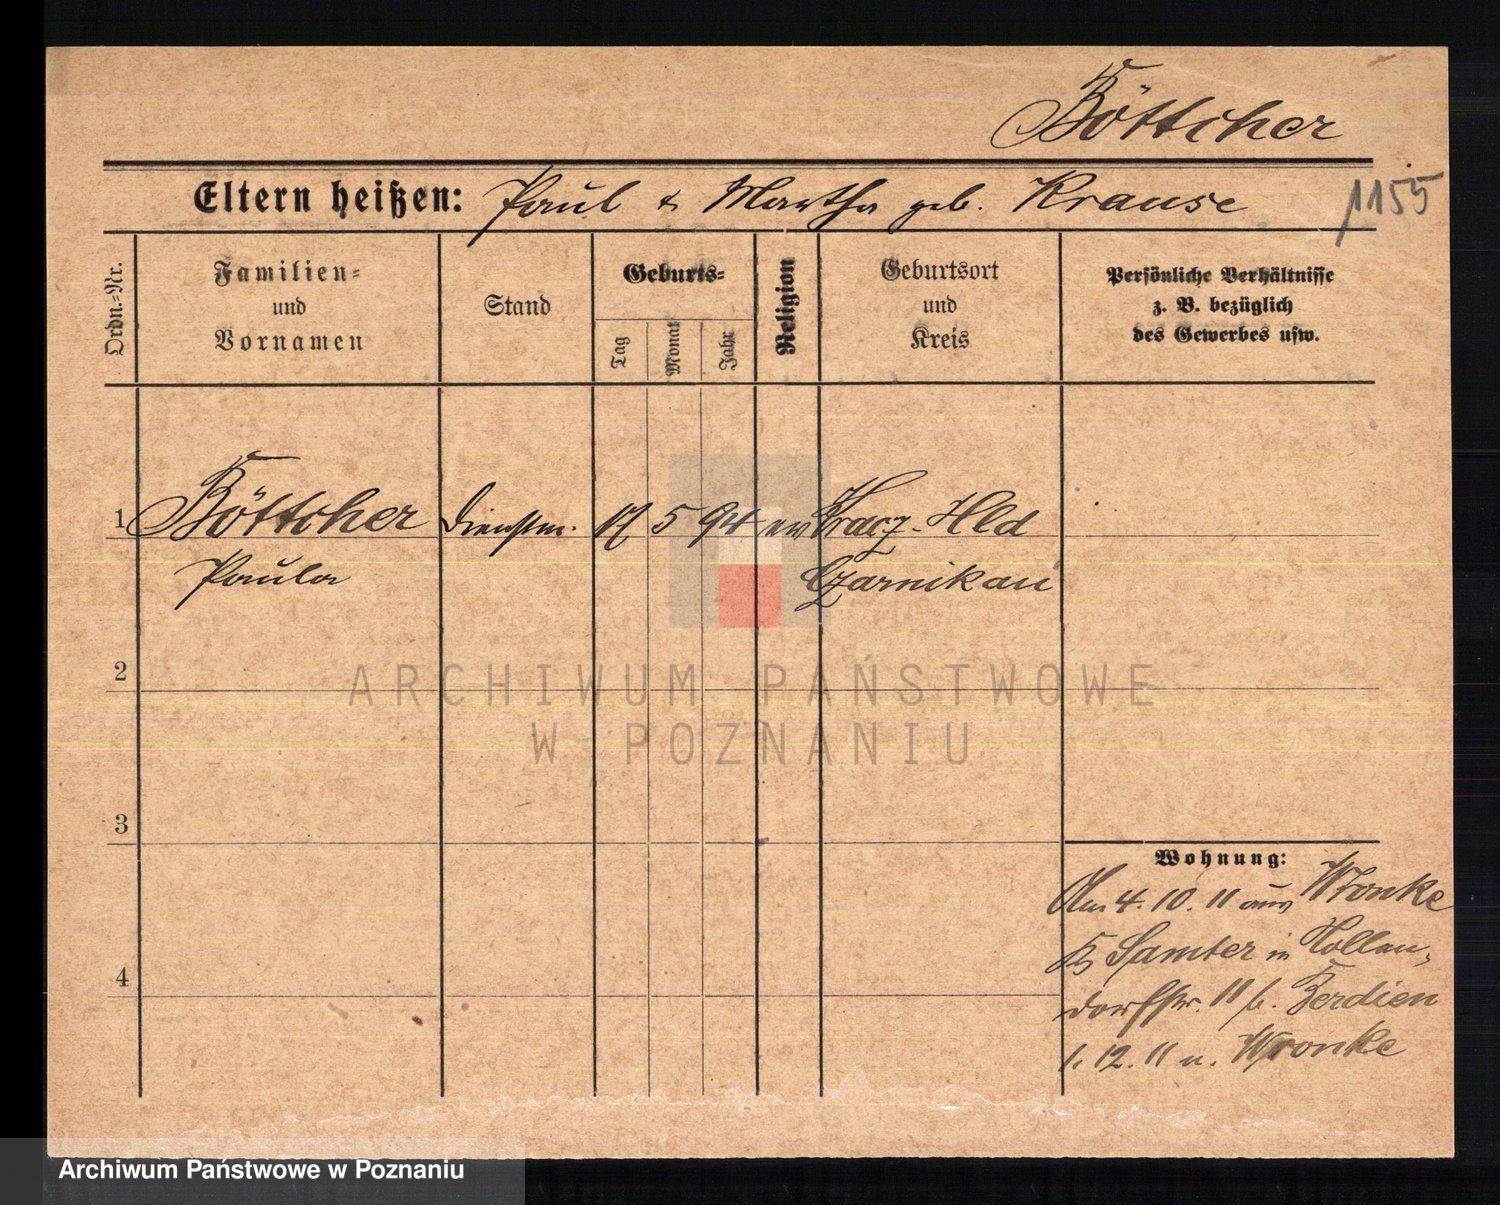 Böttcher
Eltern heißen: Paul & Martha geb. Krause
1155
Ordn.-Nr.
Familien-
und
Vornamen
Stand
Geburts-
Tag
Monat
Jahr
Religion
Geburtsort
und
Kreis
Persönliche Verhältnisse
z. B. bezüglich
des Gewerbes usw.
1 Böttcher Dienstm. 17 5 94 ev Hld
Paula Czarnikau
2
ARCHIWUM PAŃSTWOWE
W POZNANIU
3
Wohnung:
Am 4. 10. 11 aus Wronke
Kr Samter in Hollen-
dorfstr. 11 b. Berdien
1. 12. 11 n. Wronke
4
Archiwum Państwowe w Poznaniu